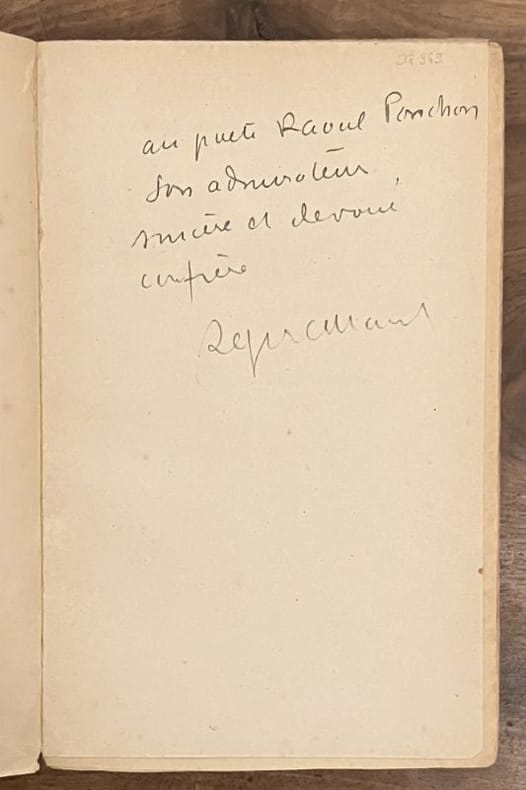 au poète Raoul Ponchon
son admirateur,
sincère et dévoué
confrère